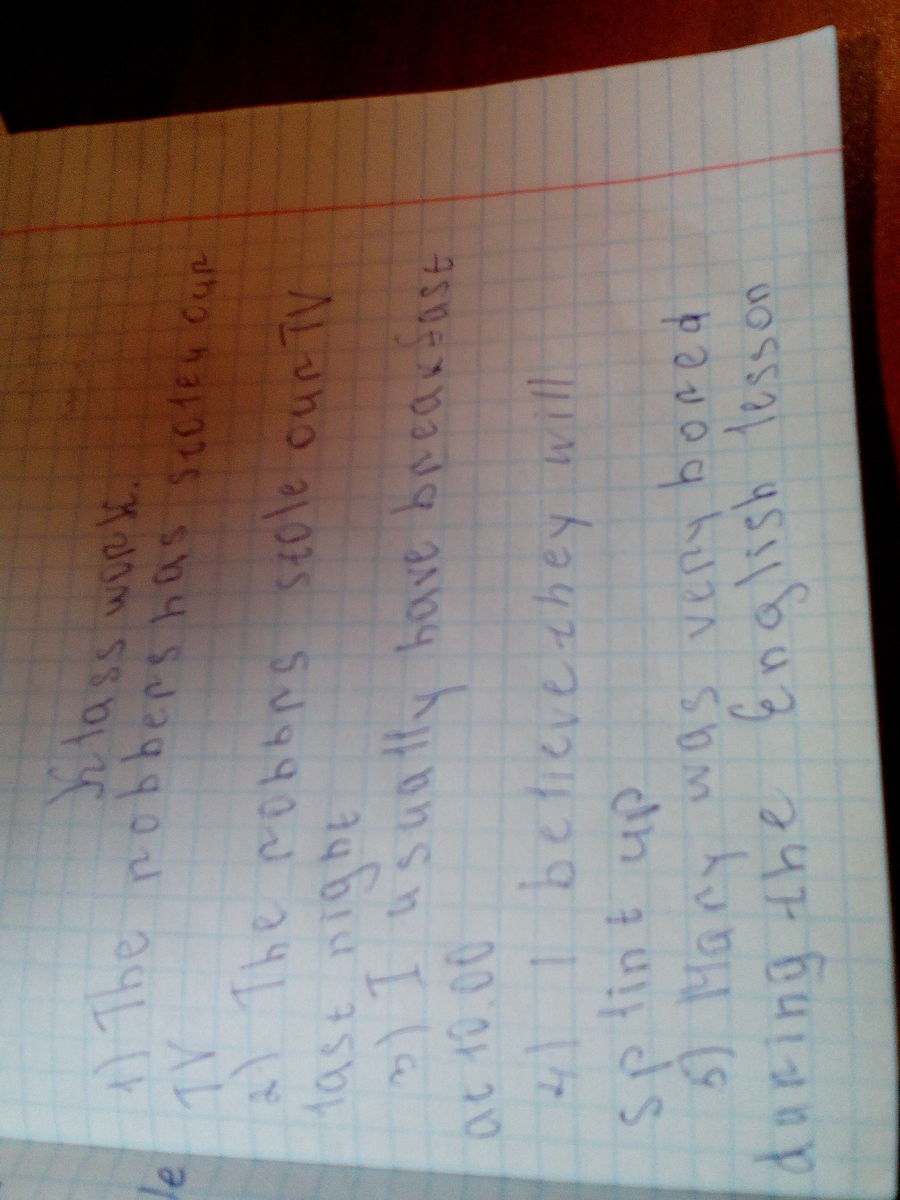 Klass work.
1) The robbers has stolen our
TV
2) The robbrs stole our TV
last night
3) I usually have breakfast
at 10.00
4) I believe they will
splint up
5) Mary was very bored
during the English lesson
le